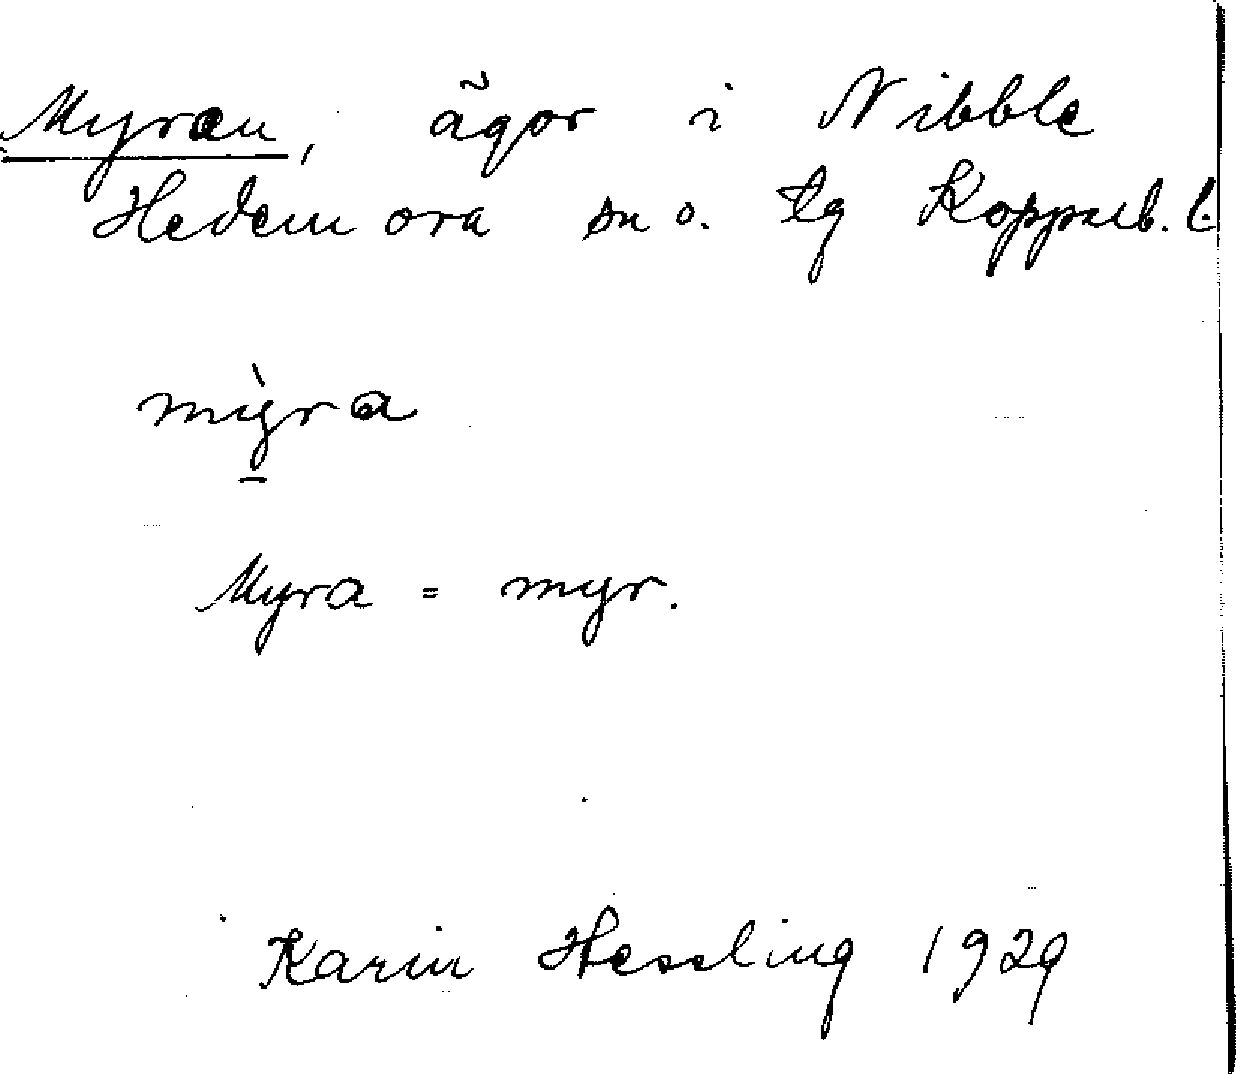 Myran, ägor i Nibble
Hedemora sn o. tg Kopparb. l.
mỳ̠ra
Myra = myr.
Karin Hessling 1929